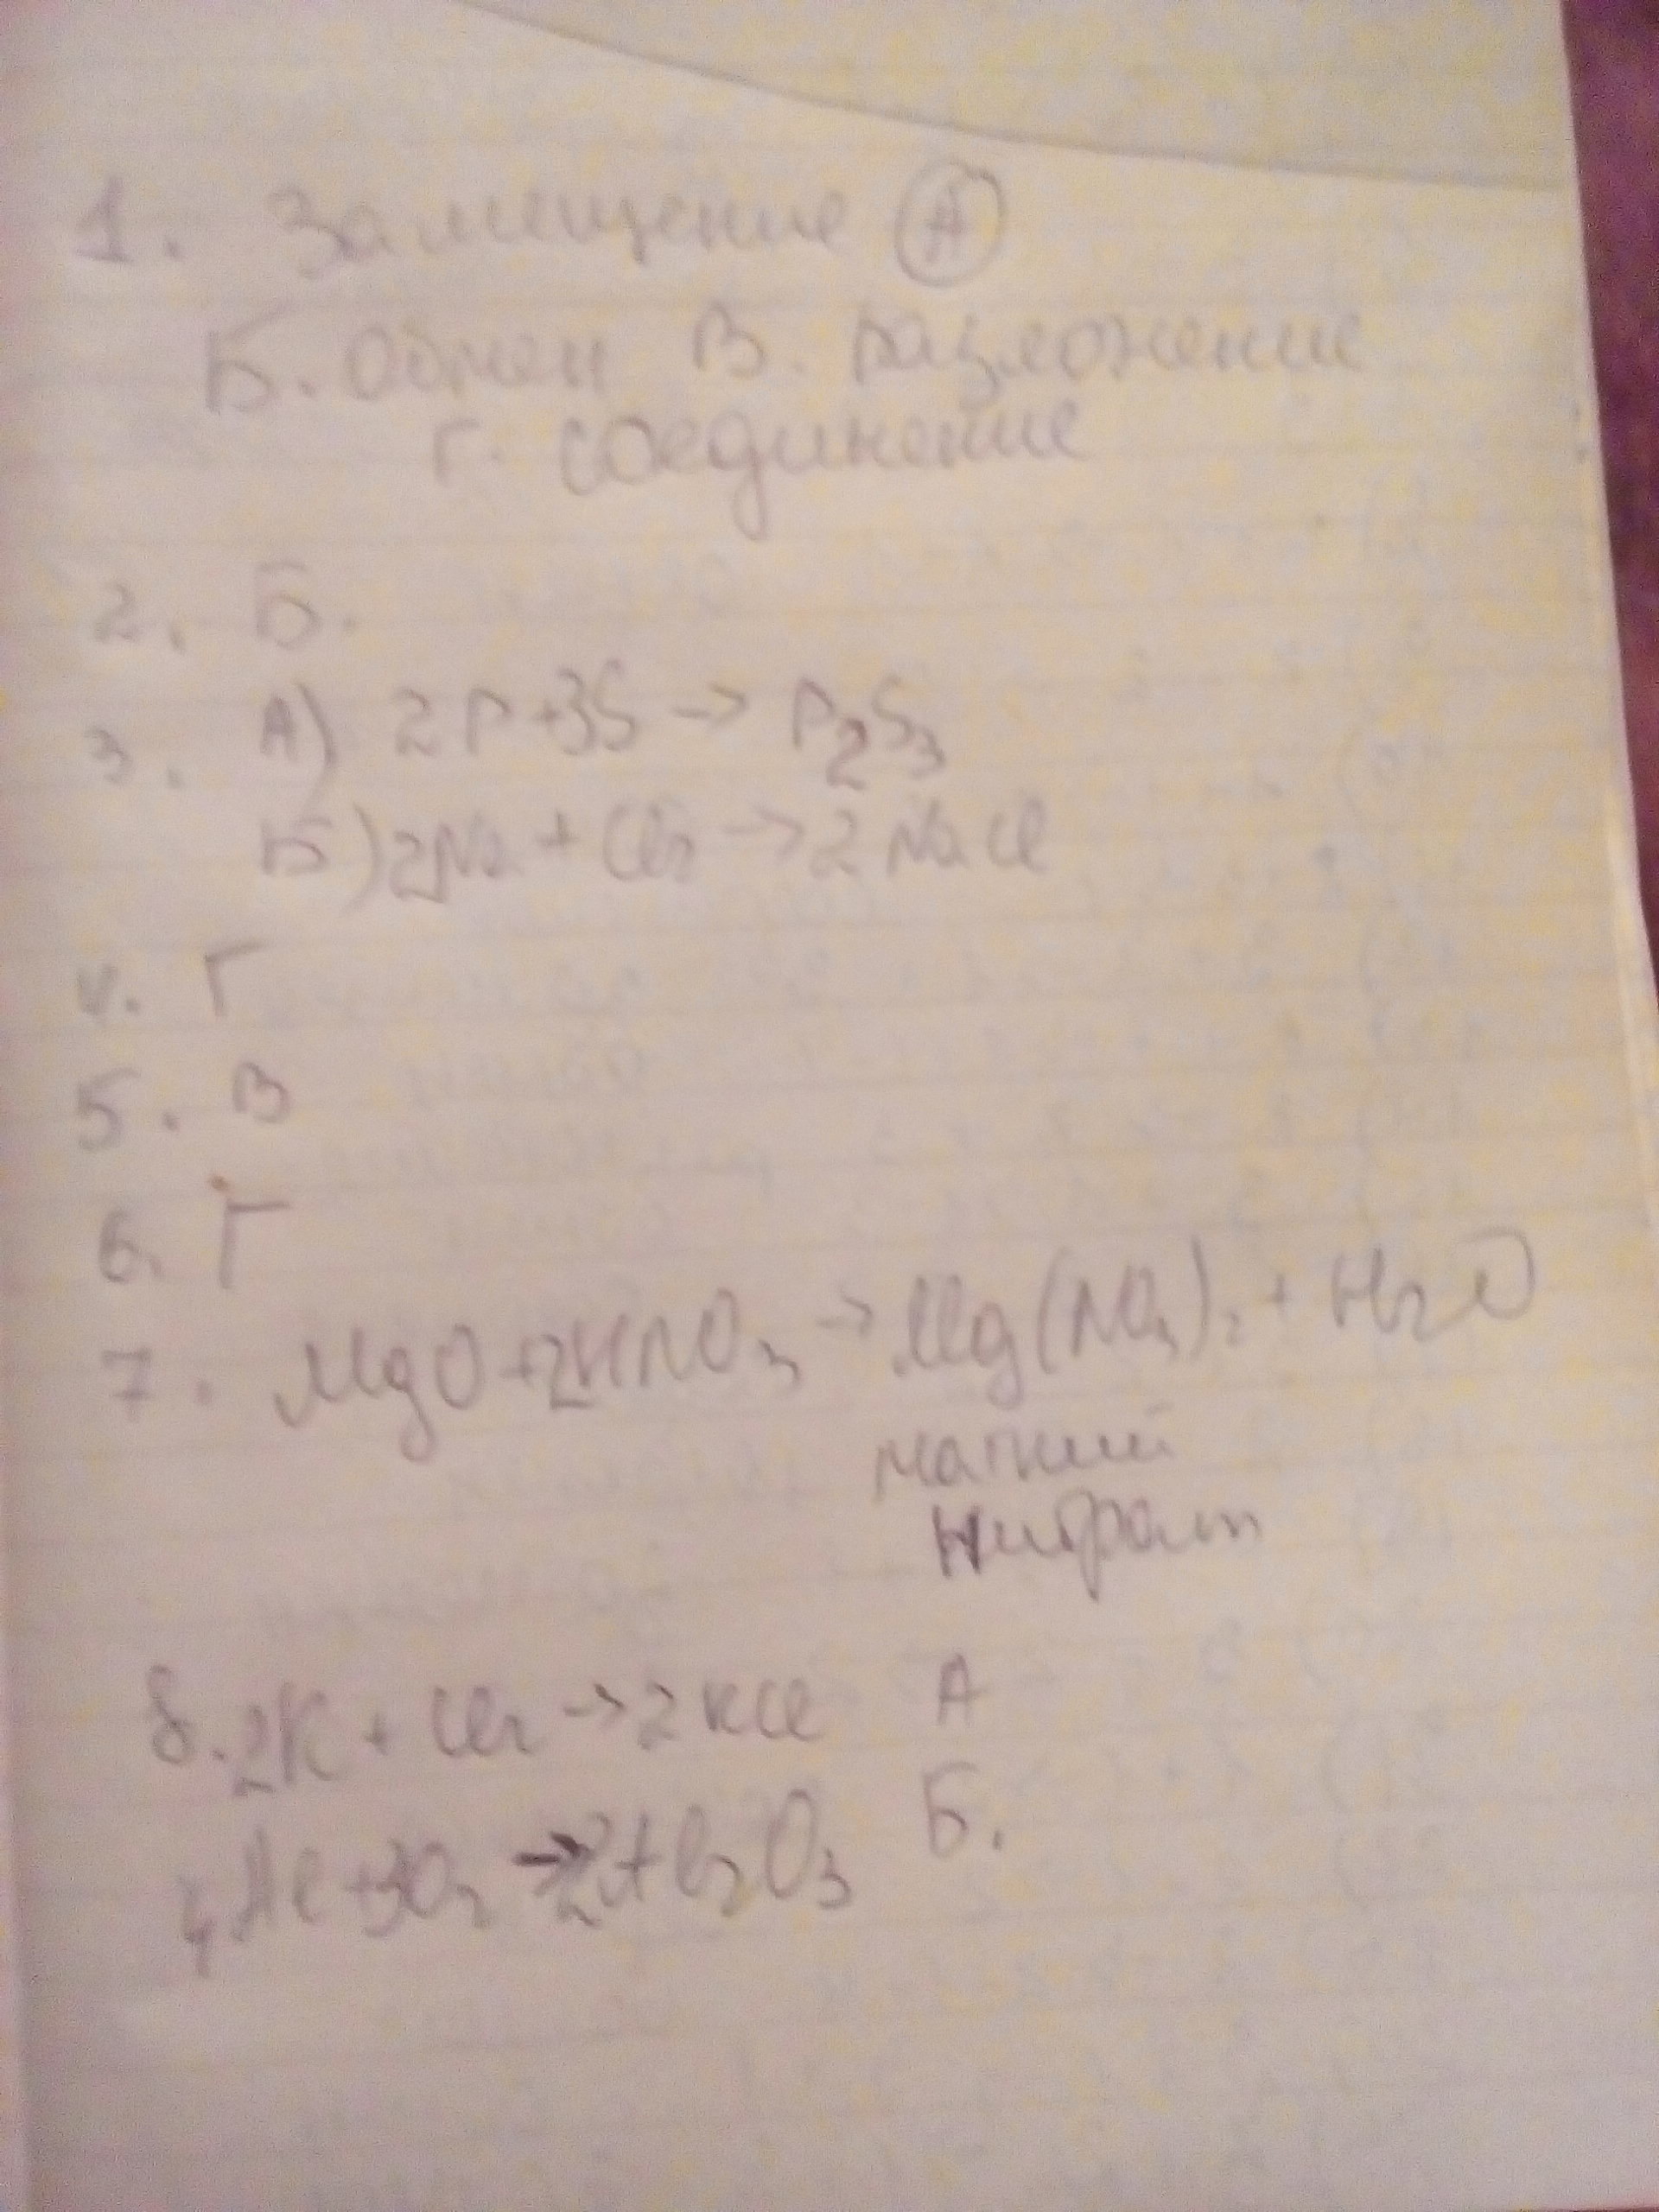 1. Замещение А
Б. Обмен В. разложение
Г. соединение
2. Б.
3. А) 2P+3S → P₂S₃
Б) 2Na + Cl₂ → 2NaCl
4. Г
5. В
6. Г
7. MgO+2HNO₃ → Mg(NO₃)₂ + H₂O
магний
нитрат
8. 2K + Cl₂ → 2KCl А
4Al+3O₂ → 2Al₂O₃ Б.